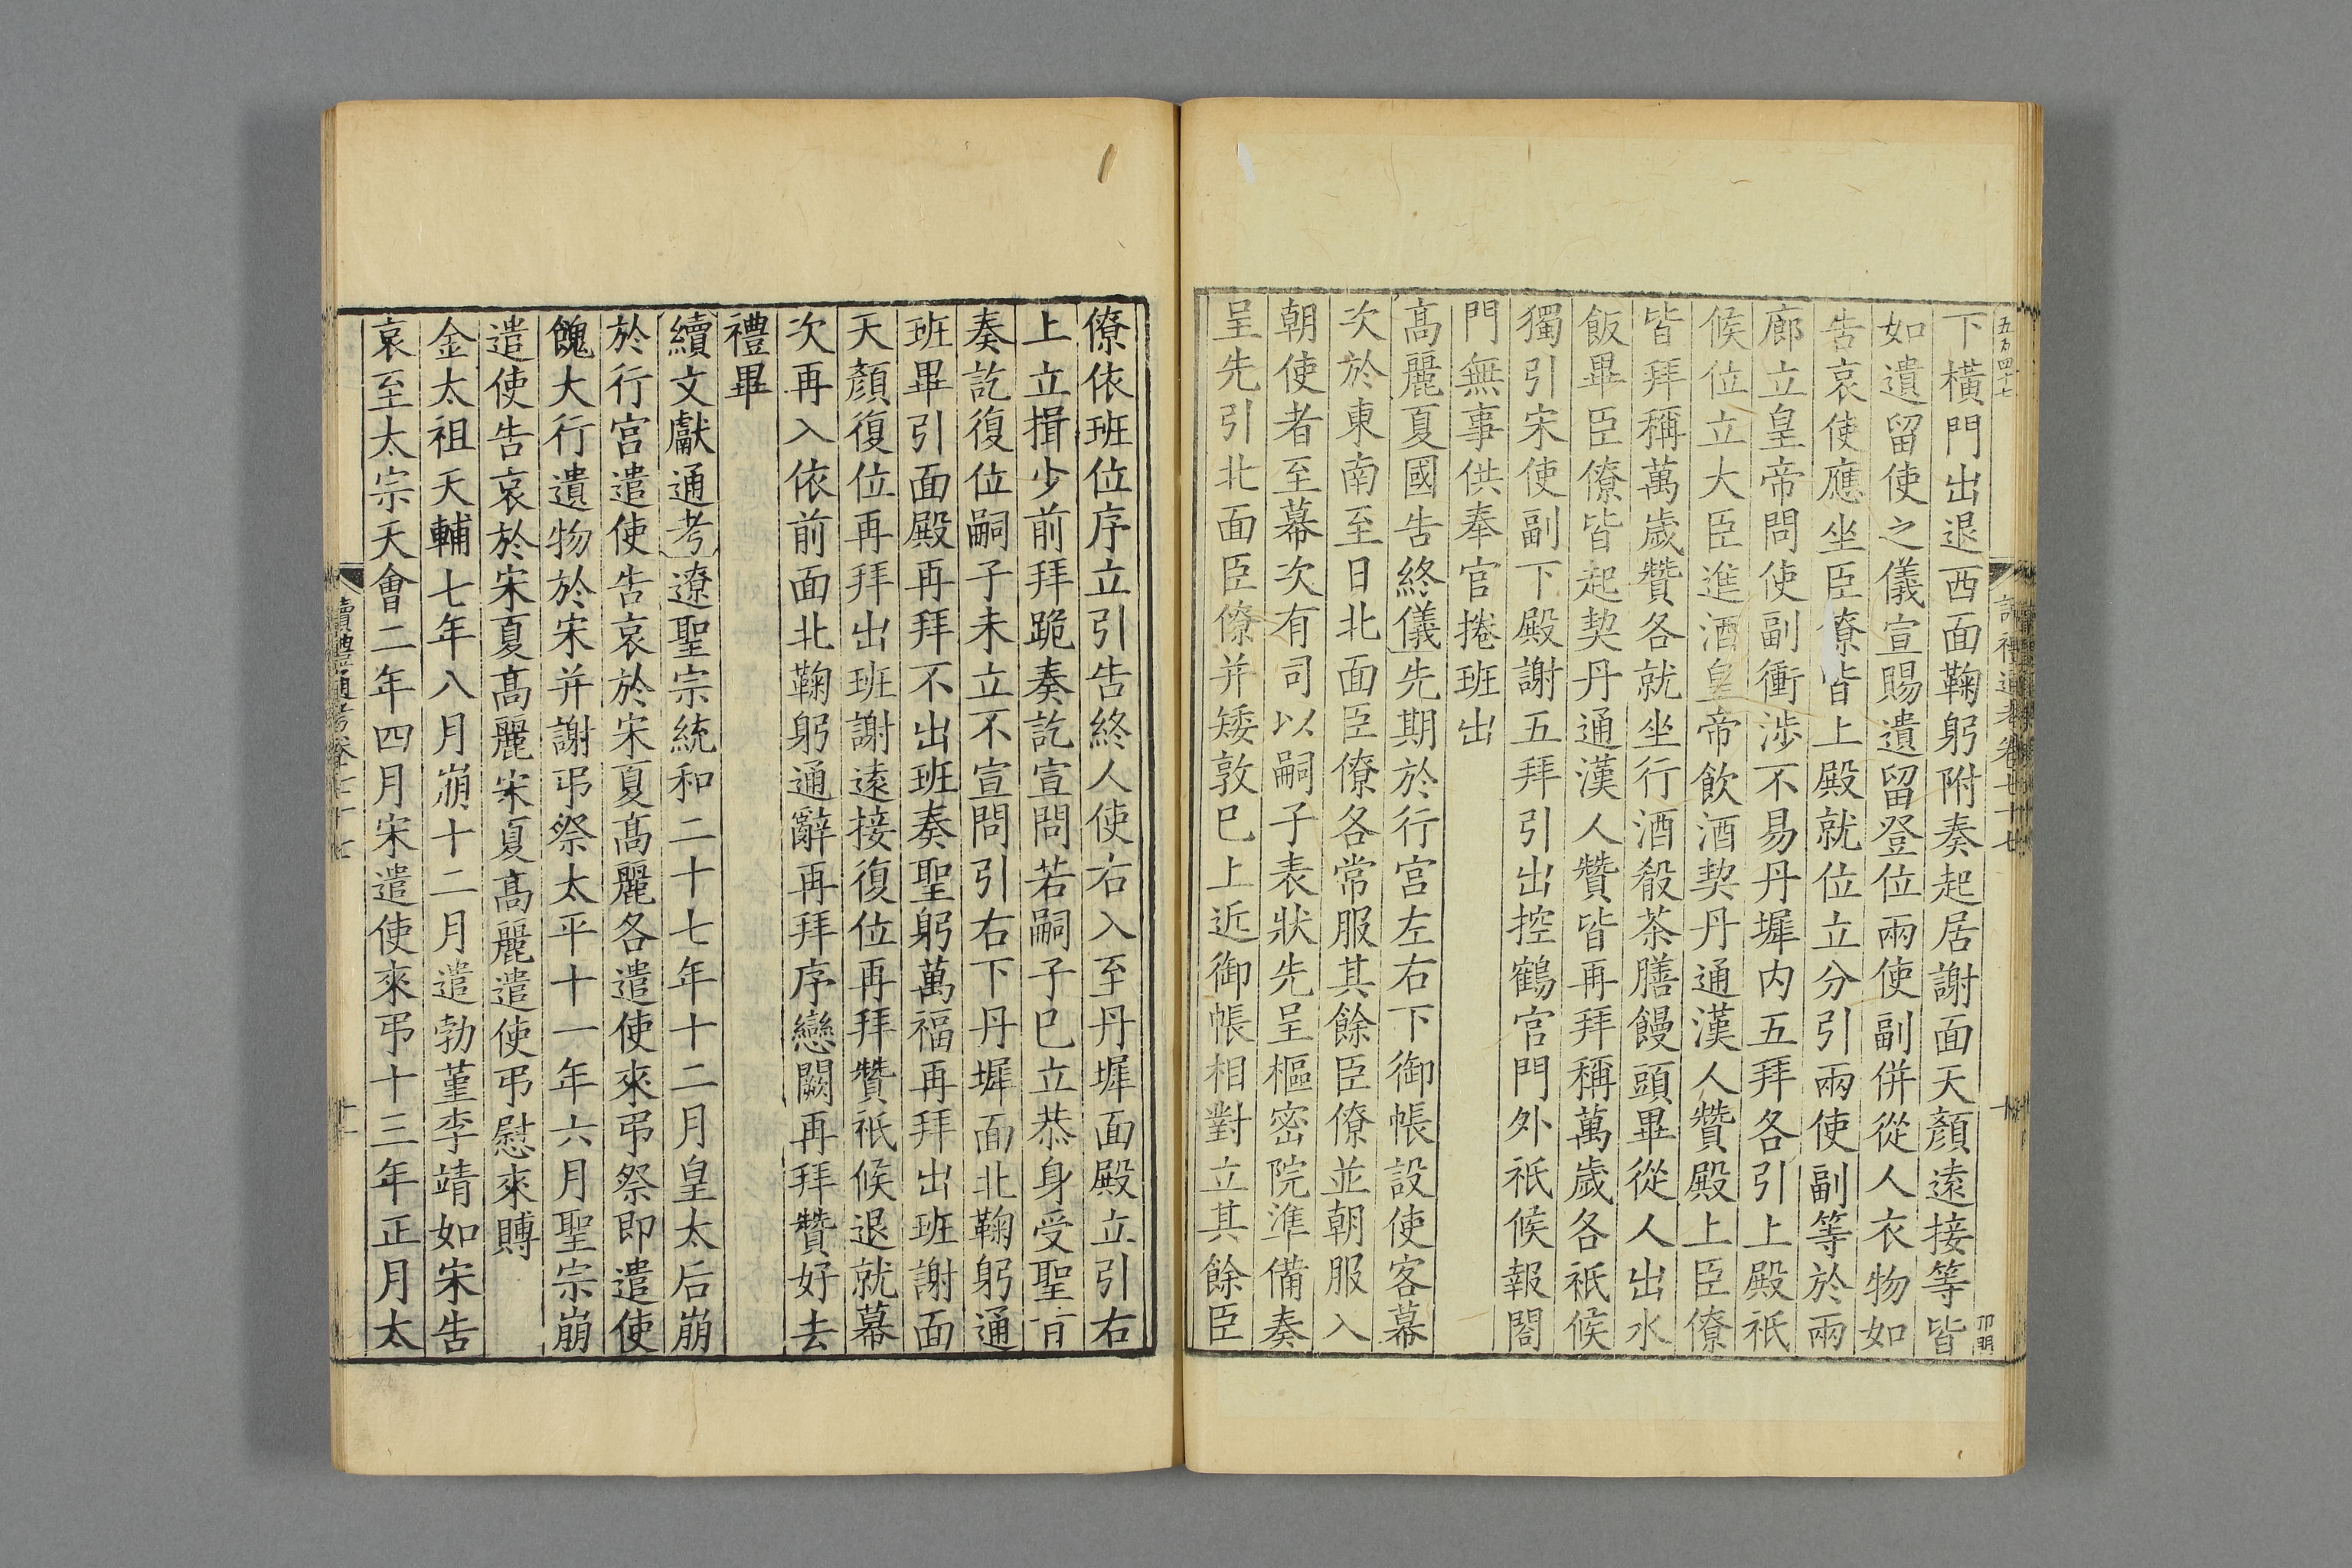 五百四十七
讀禮通考卷七十七
下橫門出退西面鞠躬附奏起居謝面天顏遠接等皆
如遺留使之儀宣賜遺留登位兩使副併從人衣物如
告哀使應坐臣僚皆上殿就位立分引兩使副等於兩
廊立皇帝問使副衝涉不易丹墀内五拜各引上殿祇
候位立大臣進酒皇帝飲酒契丹通漢人贊殿上臣僚
皆拜稱萬歲贊各就坐行酒殽茶膳饅頭畢從人出水
飯畢臣僚皆起契丹通漢人贊皆再拜稱萬歲各祇候
獨引宋使副下殿謝五拜引出控鶴官門外祇候報閤
門無事供奉官捲班出
高麗夏國告終儀先期於行宮左右下御帳設使客幕
次於東南至日北面臣僚各常服其餘臣僚並朝服入
朝使者至幕次有司以嗣子表狀先呈樞密院準備奏
呈先引北面臣僚并矮敦巳上近御帳相對立其餘臣
僚依班位序立引告終人使右入至丹墀面殿立引右
上立揖少前拜跪奏訖宣問若嗣子巳立恭身受聖旨
奏訖復位嗣子未立不宣問引右下丹墀面北鞠躬通
班畢引面殿再拜不出班奏聖躬萬福再拜出班謝面
天顏復位再拜出班謝遠接復位再拜贊祇候退就幕
次再入依前面北鞠躬通辭再拜序戀闕再拜贊好去
禮畢
續文獻通考遼聖宗統和二十七年十二月皇太后崩
於行宮遣使告哀於宋夏高麗各遣使來弔祭即遣使
餽大行遺物於宋并謝弔祭太平十一年六月聖宗崩
遣使告哀於宋夏高麗宋夏高麗遣使弔慰來賻
金太祖天輔七年八月崩十二月遣勃堇李靖如宋告
哀至太宗天會二年四月宋遣使來弔十三年正月太
讀禮通考卷七十七
十一